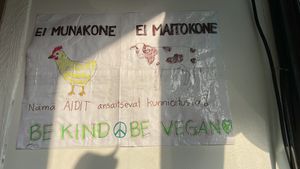 EI MUNAKONE
EI MAITOKONE
Nämä ÄIDIT ansaitsevat kunnioitusta
BE KIND BE VEGAN